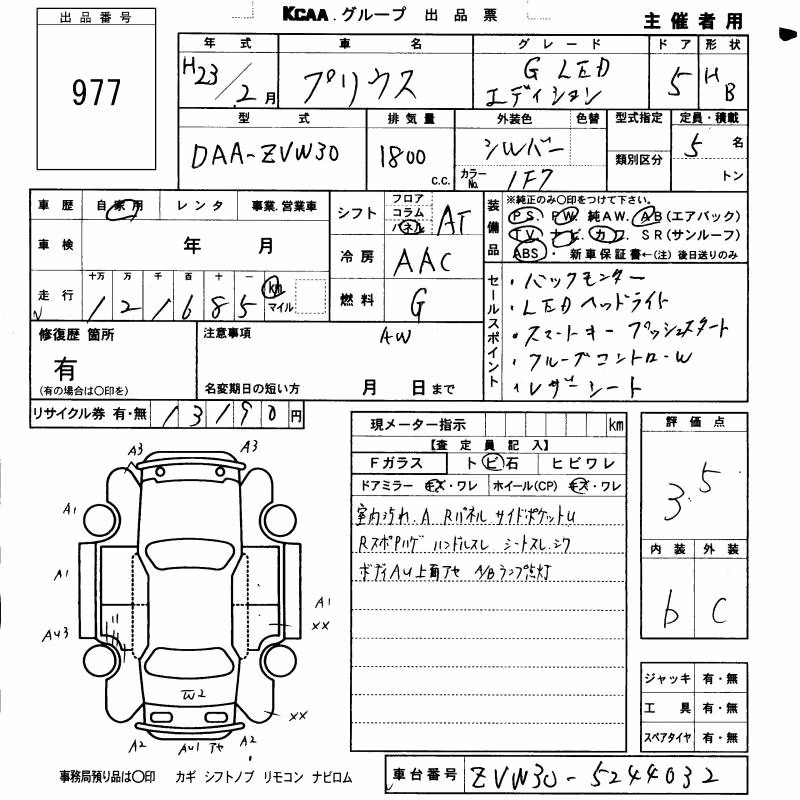 出品番号
KCAA.グループ 出品票
主催者用
977
年式 車名 グレード ドア 形状
H23/2月 プリウス G LED エディション 5 HB
型式 排気量 外装色 色替 型式指定 定員・積載
DAA-ZVW30 1800 c.c. シルバー 5名
カラーNo. 1F7 類別区分 トン
車歴 自家用 レンタ 事業.営業車
車検 年 月
走行 十万 万 千 百 十 一
121685 km マイル
シフト フロア コラム パネル AT
冷房 AAC
燃料 G
装備品 ※純正のみ〇印をつけて下さい。
PS. PW. 純AW. AB(エアバック)
TV. ナビ. カワ. SR(サンルーフ)
ABS・ 新車保証書←(注)後日送りのみ
セールスポイント
・バックモンター
・LEDヘッドライト
・スマートキー プッシュスタート
・クルーズコントロール
・レザーシート
修復歴 箇所
有
(有の場合は〇印を)
注意事項 AW
名変期日の短い方 月 日まで
リサイクル券 有・無 13190円
現メーター指示 km
【査定員記入】
Fガラス トビ石 ヒビワレ
ドアミラー キズ・ワレ ホイール(CP) キズ・ワレ
室内汚れ.A Rパネル サイドポケットU
Rスポハゲ ハンドルスレ シートスレ.シワ
ボディAU上面アセ A/Bランプ点灯
評価点
3.5
内装 外装
b C
ジャッキ 有・無
工具 有・無
スペアタイヤ 有・無
A3 A3
A1
A1
A1
XX
AU3
W2
XX
A2 AU1 アセ A2
事務局預り品は〇印 カギ シフトノブ リモコン ナビロム
車台番号 ZVW30-5244032